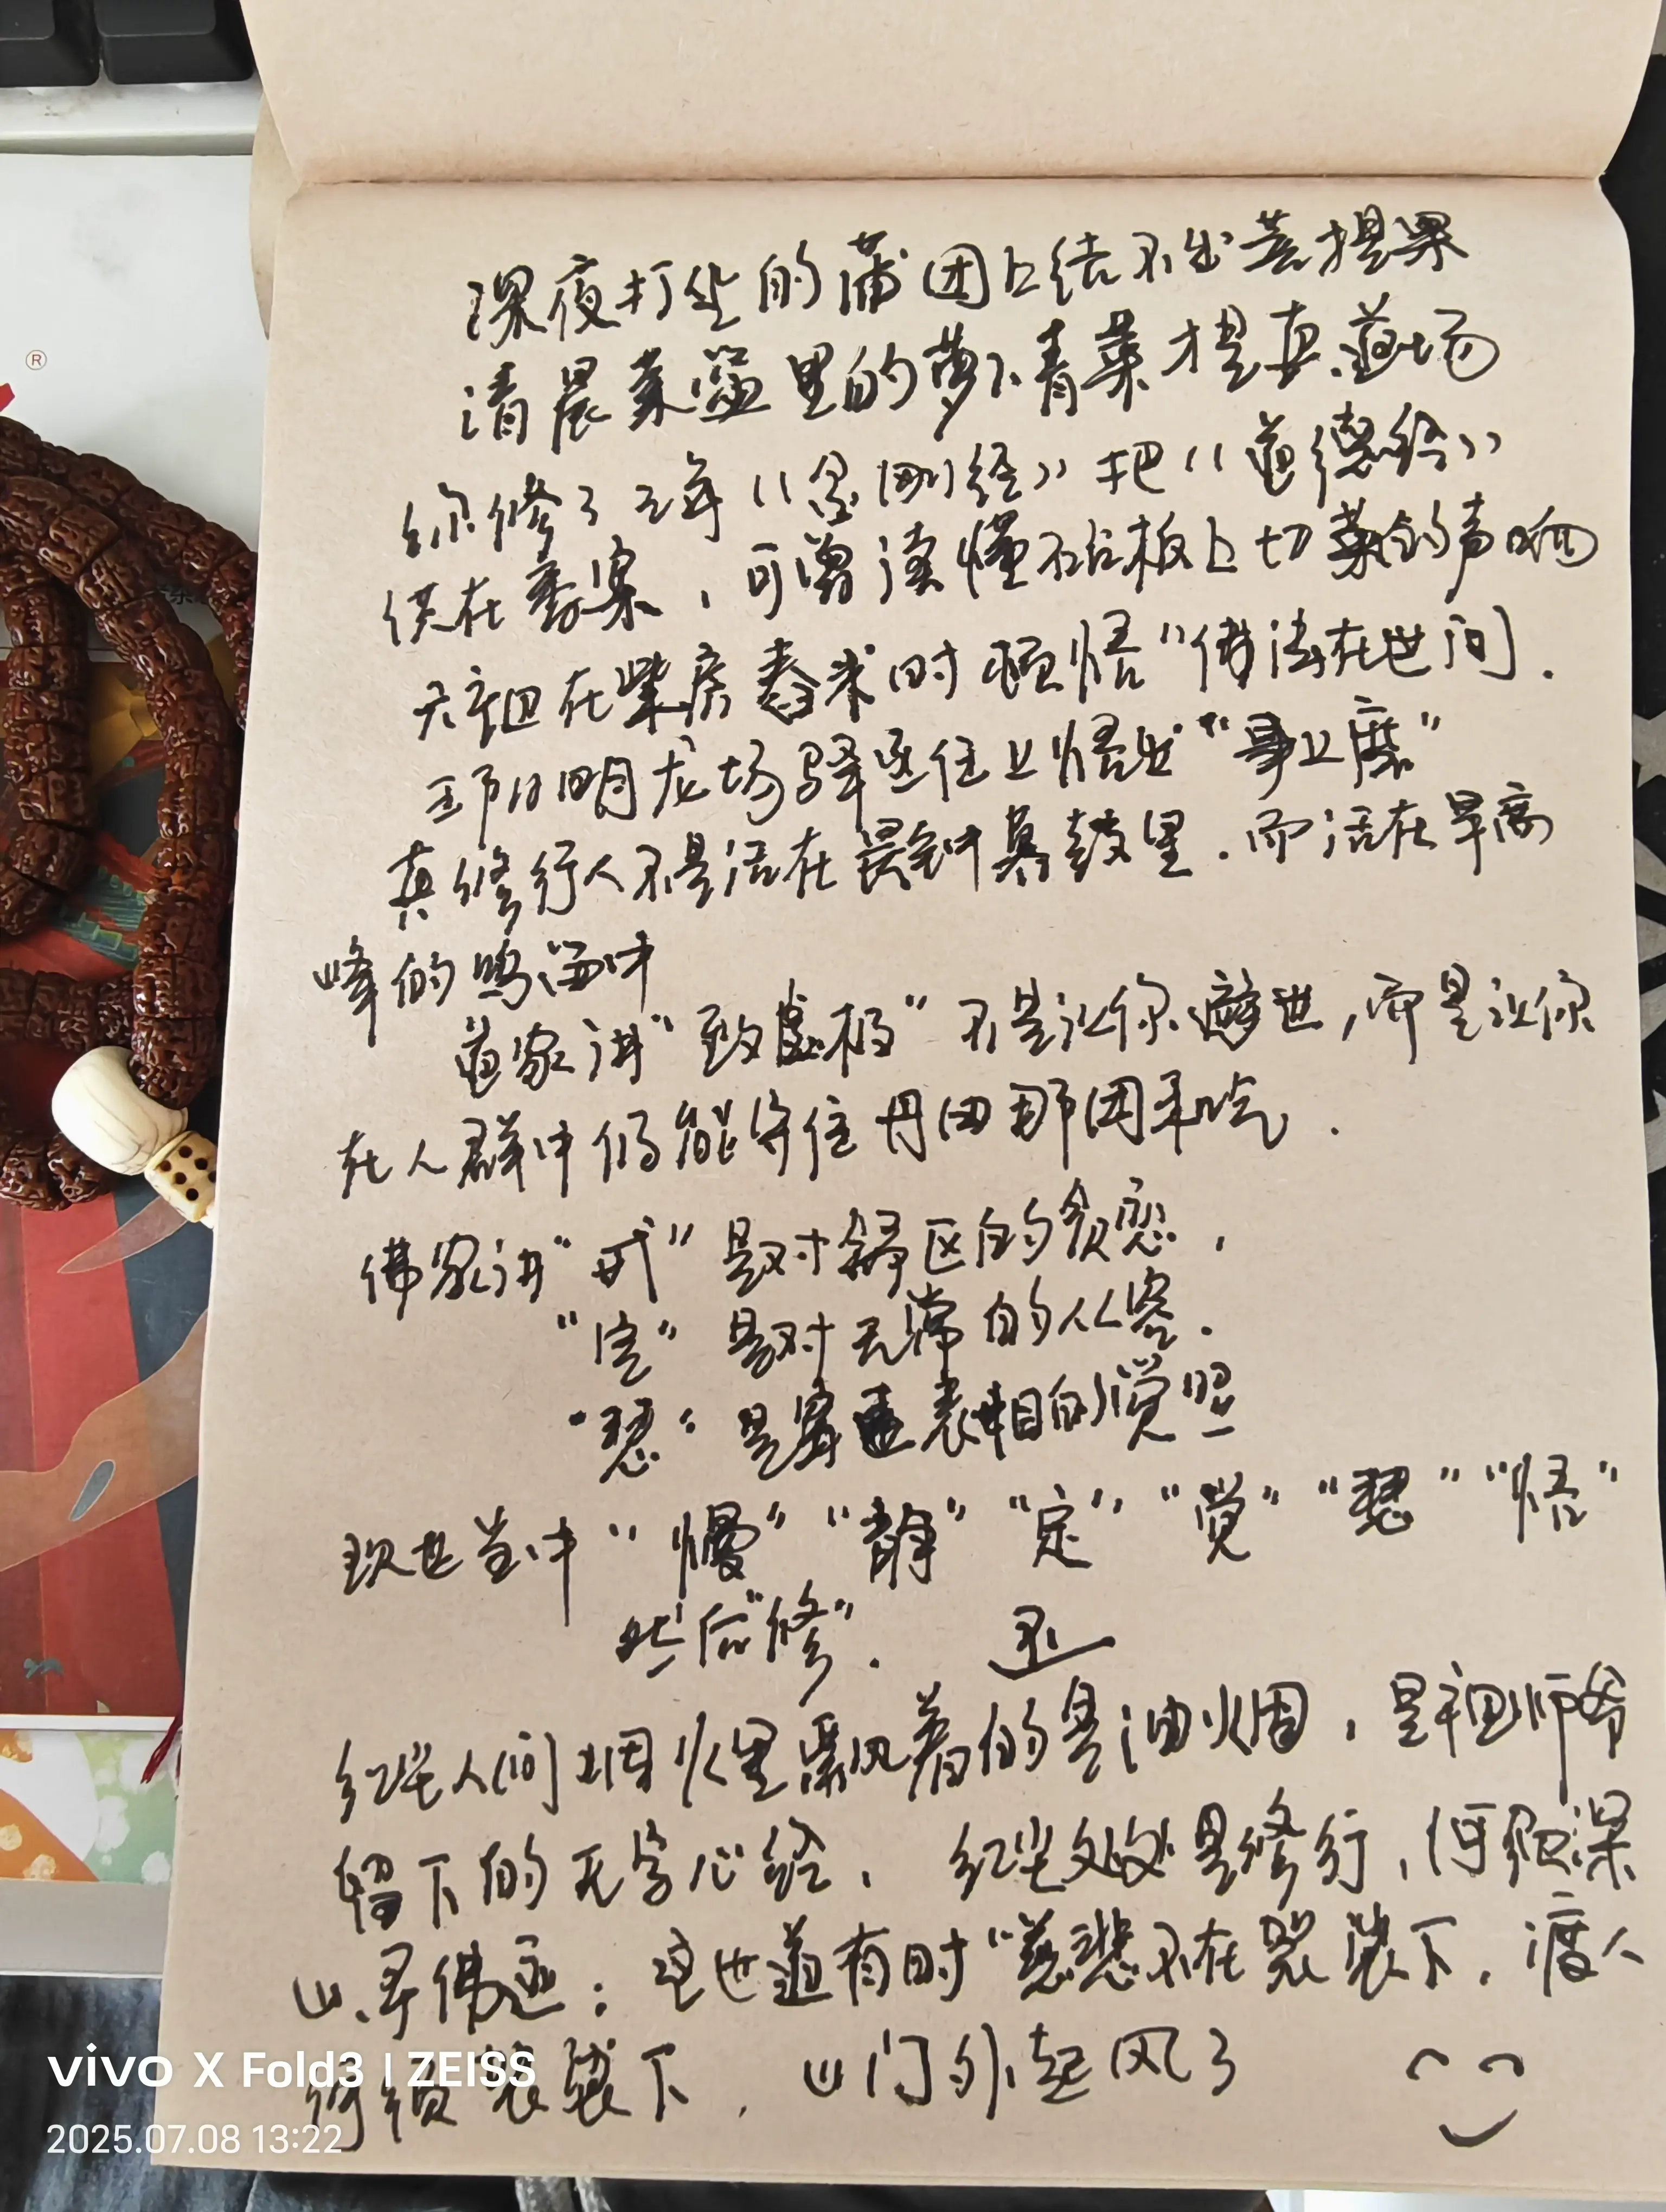 深夜打坐的蒲团上结不出菩提果
清晨菜篮里的萝卜青菜才是真道场
你修了三年《金刚经》把《道德经》
供在香案，可曾读懂砧板上切菜的声响
六祖在柴房舂米时顿悟"佛法在世间.
王阳明龙场驿丞任上悟出"事上磨"
真修行人不是活在晨钟暮鼓里.而活在早高
峰的鸣笛中
道家讲"致虚极"不是让你避世,而是让你
在人群中仍能守住丹田那团炁.
佛家讲"戒"是对舒适区的贪恋,
"定"是对无常的从容.
"慧"是穿透表相的觉照
现世当中"慢""静""定""觉""慧""悟"
然后"修".
红尘人间烟火里飘着的是油烟,是祖师爷
留下的无字心经, 红尘处处是修行,何须深
山寻佛迹;这世道有时"慈悲不在袈裟下,渡人
何须袈裟下, 山门外起风了
®
vivo X Fold3 | ZEISS
2025.07.08 13:22